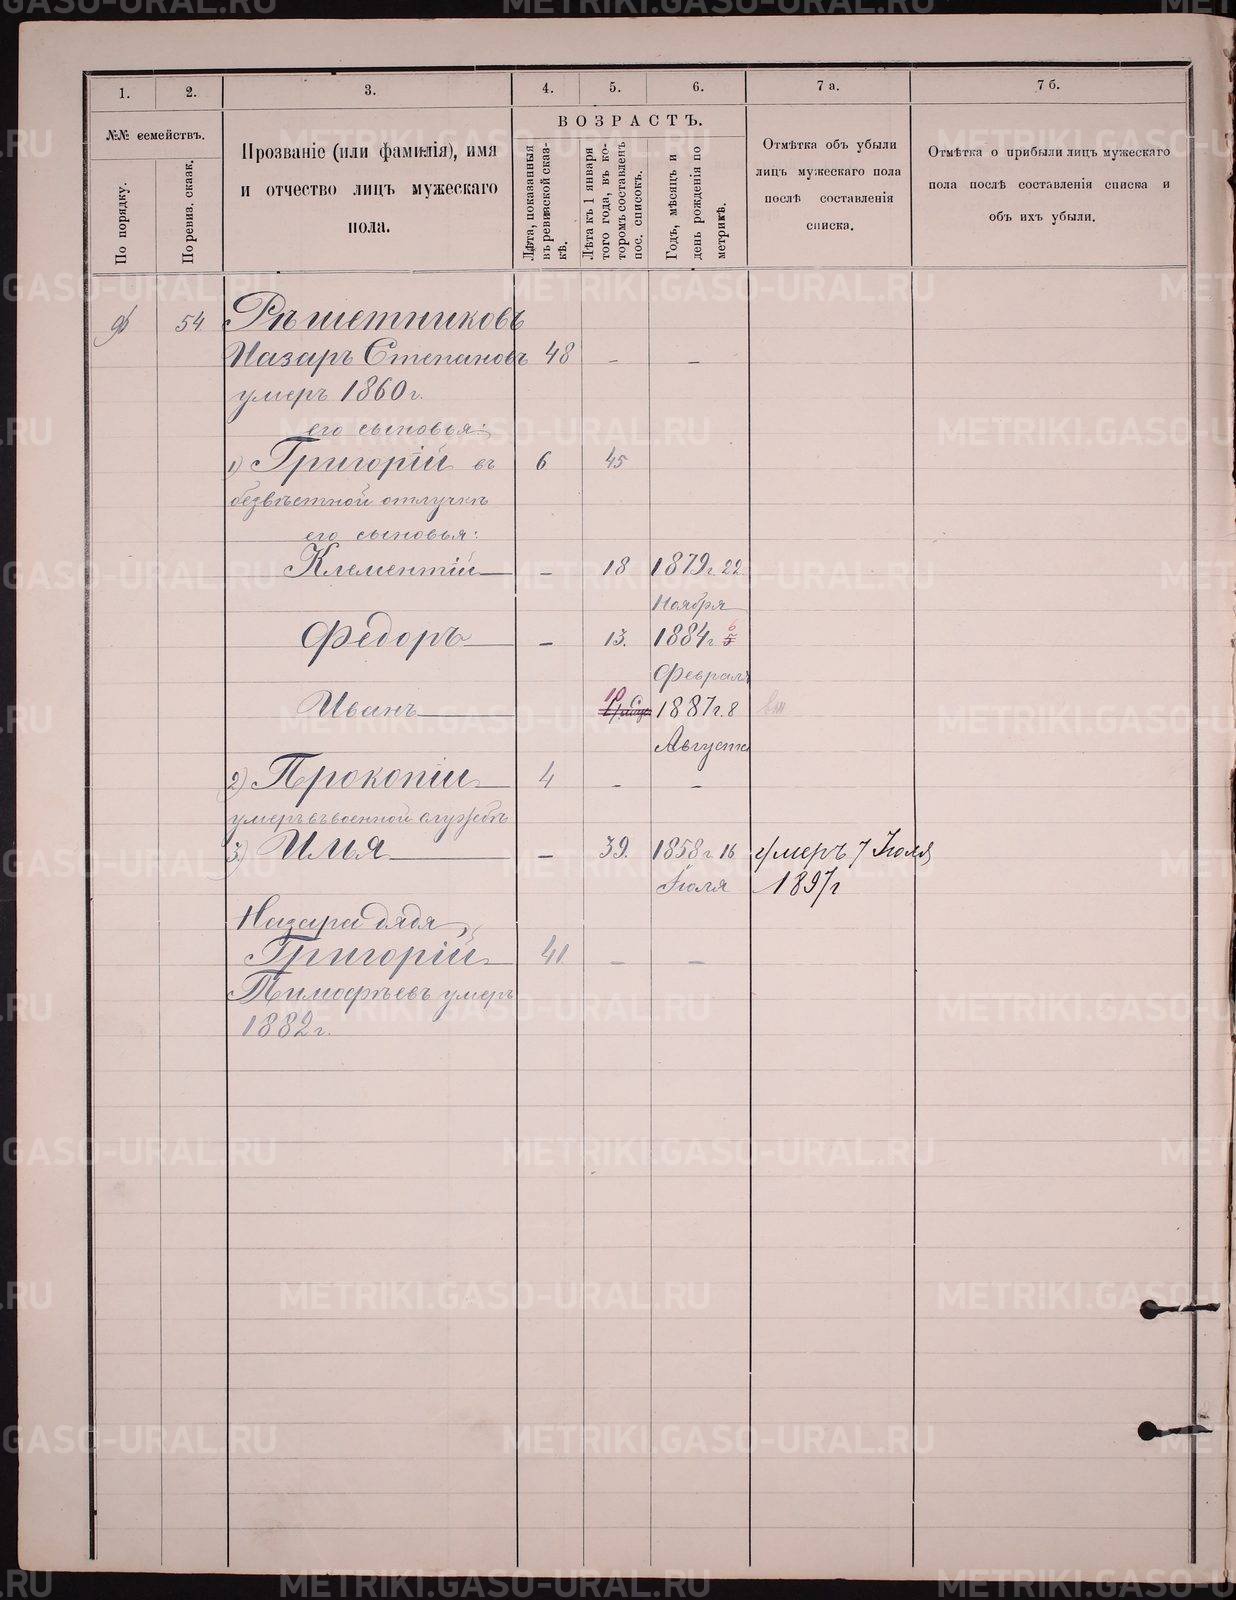 METRIKI.GASO-URAL.RU
1.
2.
3.
4.
5.
6.
7 а.
7 б.
№№ семействъ.
По порядку.
По ревиз. сказк.
Прозваніе (или фамилія), имя
и отчество лицъ мужескаго
пола.
ВОЗРАСТЪ.
Лѣта, показанныя
въ ревизской сказ-
кѣ.
Лѣта къ 1 января
того года, въ ко-
торомъ составленъ
пос. списокъ.
Годъ, мѣсяцъ и
день рожденія по
метрикѣ.
Отмѣтка объ убыли
лицъ мужескаго пола
послѣ составленія
списка.
Отмѣтка о прибыли лицъ мужескаго
пола послѣ составленія списка и
объ ихъ убыли.
54 Рѣшетниковъ
Назаръ Степановъ 48 - -
умеръ 1860 г.
его сыновья:
1) Григорій въ 6 45
безвѣстной отлучкѣ
его сыновья:
Клементій - 18 1879 г. 22
Ноября
Федоръ - 13. 1884 г. 5 6
Февраля
Иванъ 10 1887 г. 8
Августа
2) Прокопій 4 - -
умеръ въ военной службѣ
3) Илья - 39. 1858 г. 16 умеръ 7 Іюля
Іюля 1897 г
Назара дядя,
Григорій 41 - -
Тимофѣевъ умеръ
1882 г.